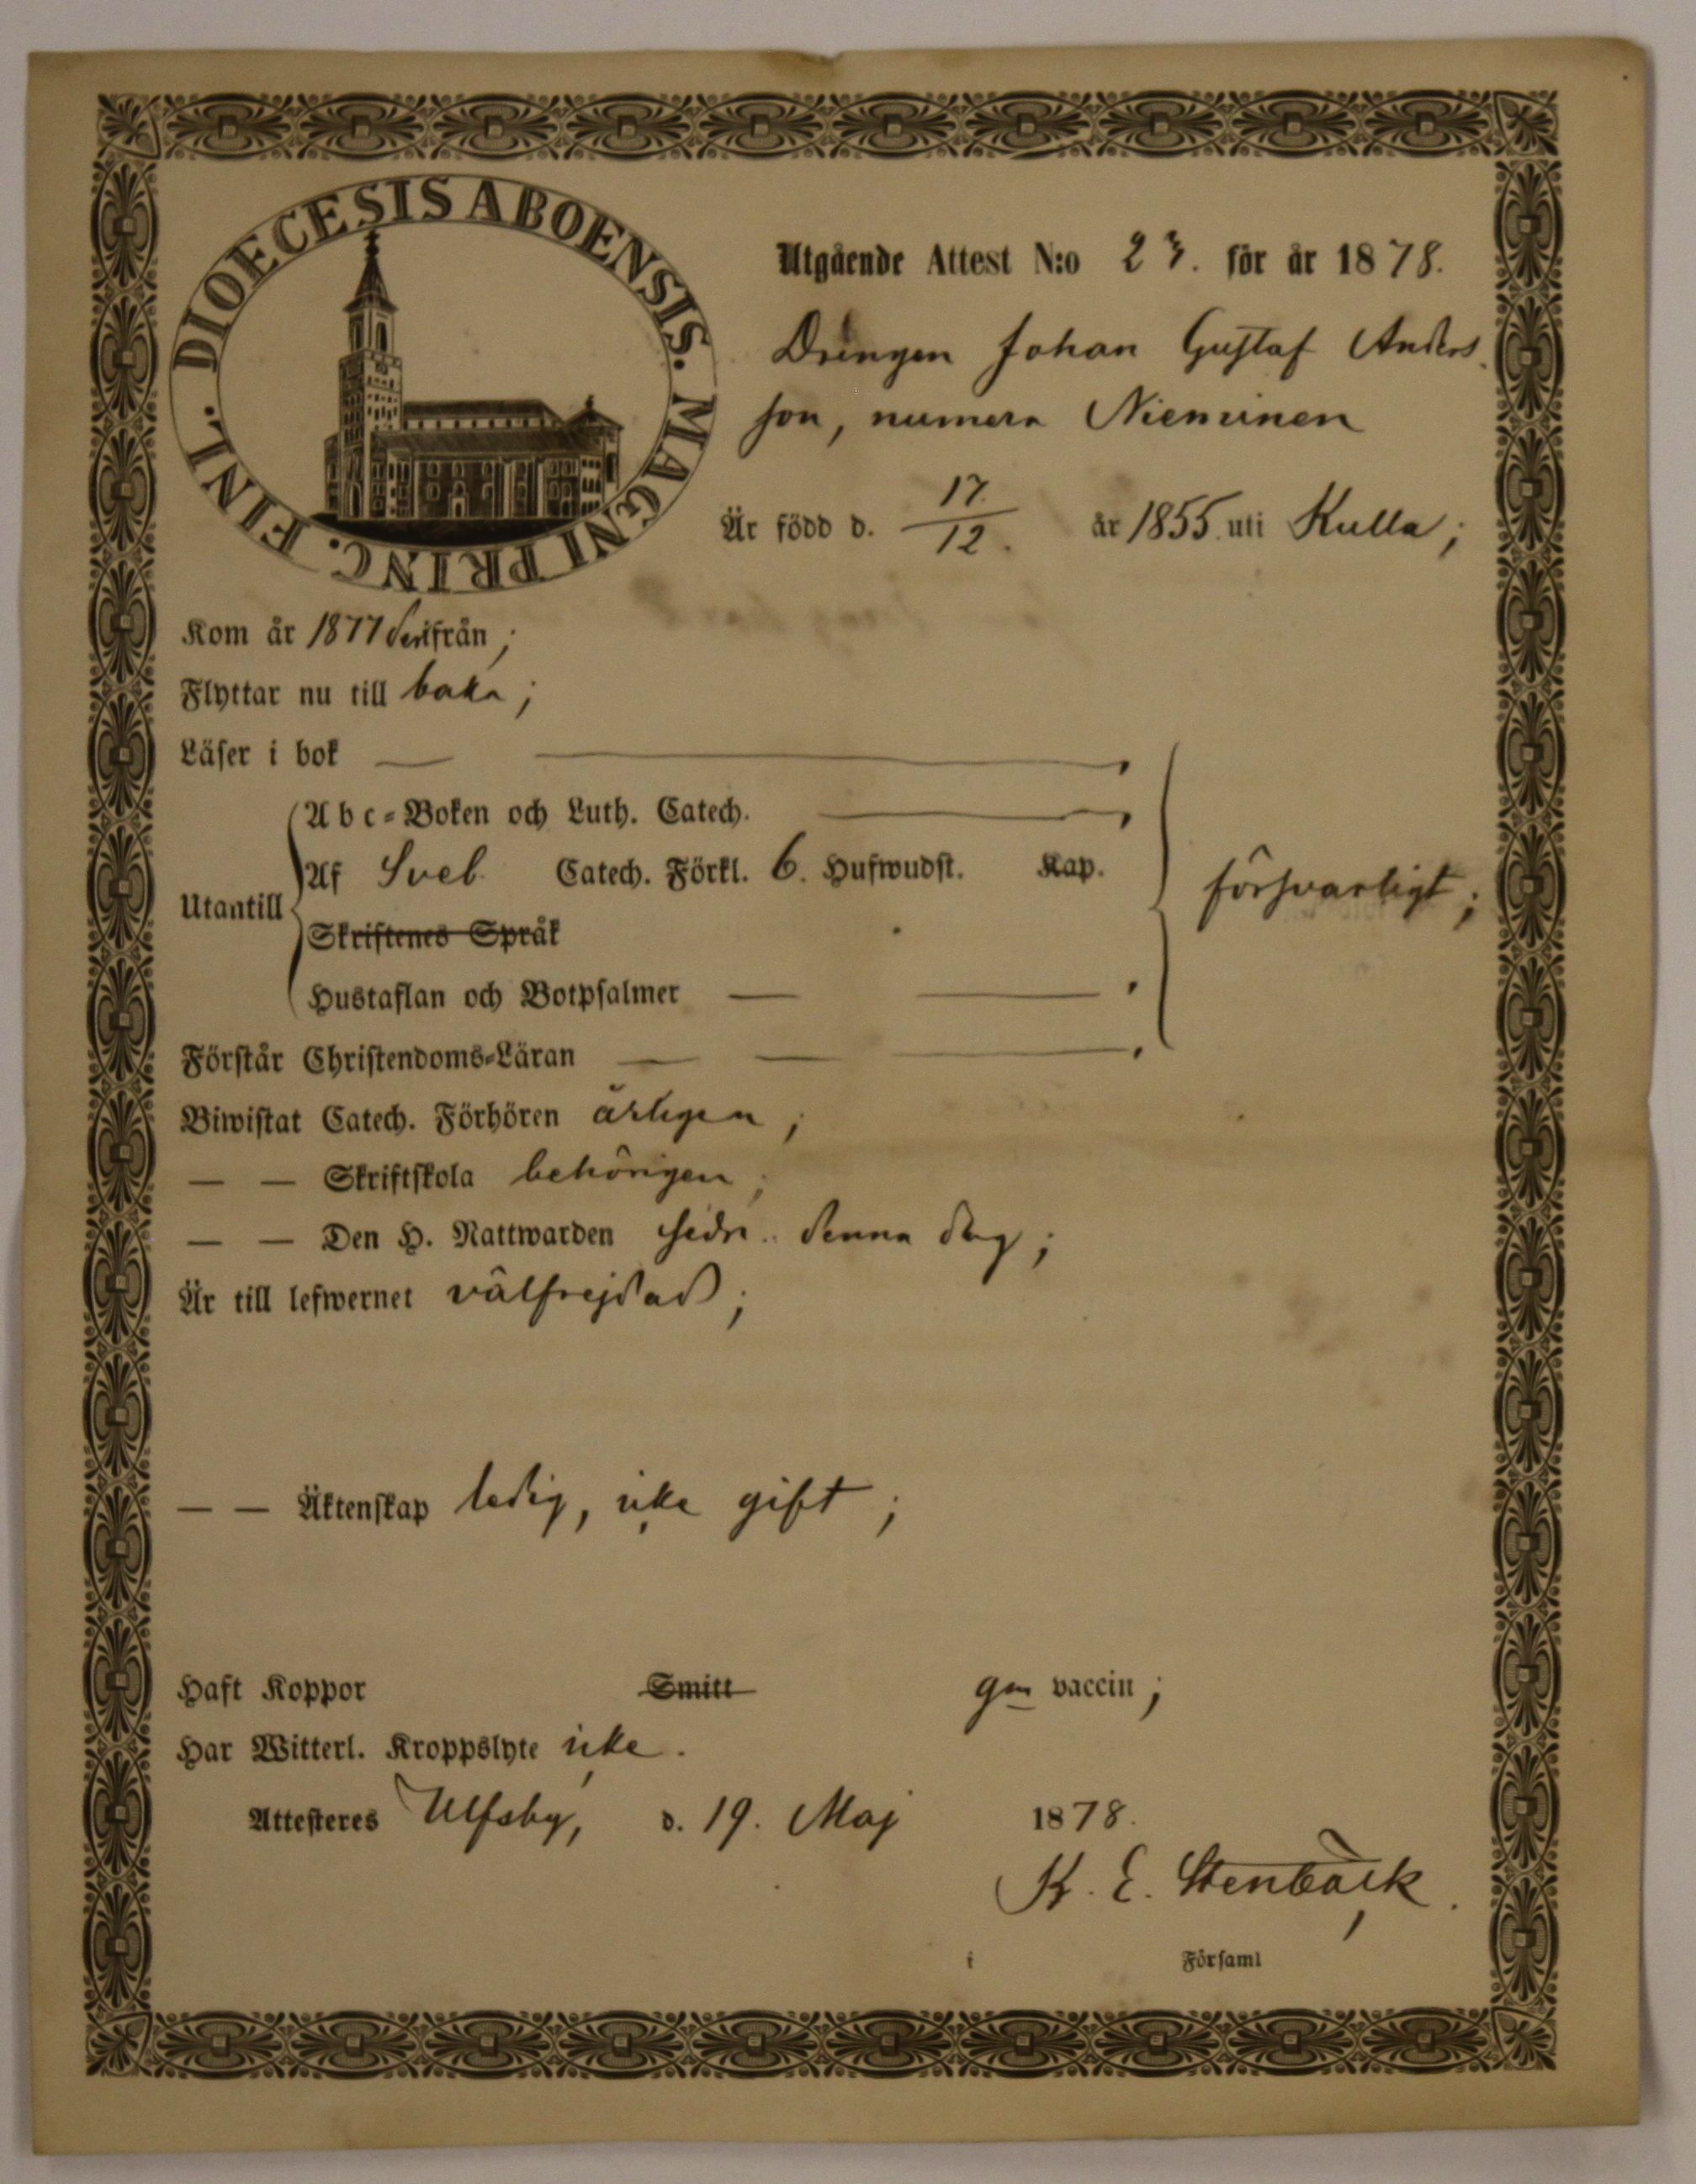 DIOECESIS ABOENSIS. MAGNI PRINC. FINL.
Utgående Attest N:o 23. för år 1878.
Drengen Johan Gustaf Anders
son, numera Nieminen
Är född d. 17/12. år 1855. uti Kulla;
Kom år 1877 derifrån;
Flyttar nu till baka;
Läser i bok — —,
Abc-Boken och Luth. Catech. —,
Utantill Af Sveb. Catech. Förkl. 6. Hufwudst. Kap. försvarligt;
Skriftenes Språk
Hustaflan och Botpsalmer — —,
Förstår Christendoms-Läran — — —,
Biwistat Catech. Förhören årligen;
— — Skriftskola behörigen;
— — Den H. Nattwarden sedn. denna dag;
Är till lefwernet välfrejdad;
— — Äktenskap ledig, icke gift;
Haft Koppor Smitt gm vaccin;
Har Witterl. Kroppslyte icke.
Attesteres Ulfsby, d. 19. Maj 1878.
K. E. Stenbäck.
i Församl